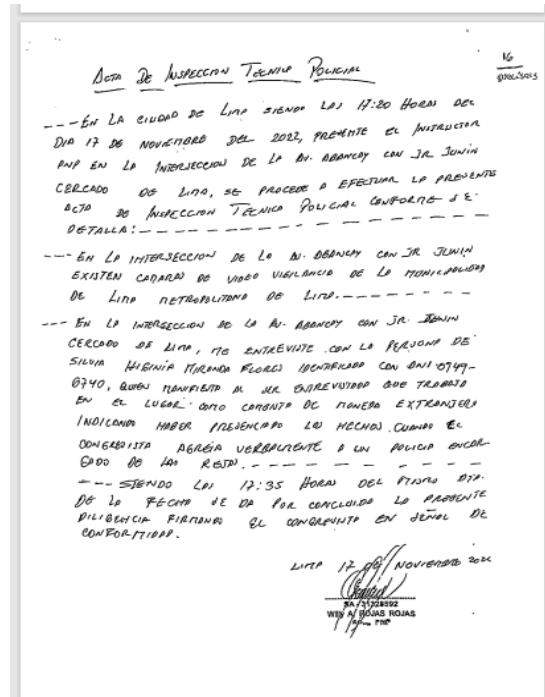 16
ACTA DE INSPECCION TECNICA POLICIAL
--- EN LA CIUDAD DE LIMA SIENDO LAS 17:20 HORAS DEL
DIA 17 DE NOVIEMBRE DEL 2022, PRESENTE EL INSTRUCTOR
PNP EN LA INTERSECCION DE LA AV. ABANCAY CON JR JUNIN
CERCADO DE LIMA, SE PROCEDE A EFECTUAR LA PRESENTE
ACTA DE INSPECCION TECNICA POLICIAL CONFORME SE
DETALLA: - - - - - - - - - - - - - - -
--- EN LA INTERSECCION DE LA AV. ABANCAY CON JR JUNIN
EXISTEN CAMARAS DE VIDEO VIGILANCIA DE LA MUNICIPALIDAD
DE LIMA METROPOLITANA DE LIMA. - - - - - - -
--- EN LA INTERSECCION DE LA AV. ABANCAY CON JR. JUNIN
CERCADO DE LIMA, ME ENTREVISTE CON LA PERSONA DE
SILVIA HIGINIA MIRANDA FLORES IDENTIFICADA CON DNI
0740, QUIEN MANIFIESTA AL SER ENTREVISTADA QUE TRABAJA
EN EL LUGAR COMO CAMBISTA DE MONEDA EXTRANJERA
INDICANDO HABER PRESENCIADO LOS HECHOS CUANDO EL
CONGRESISTA AGREDIA VERBALMENTE A UN POLICIA ENCAR-
GADO DE LAS REJAS. - - - - - - - -
--- SIENDO LAS 17:35 HORAS DEL MISMO DIA
DE LA FECHA SE DA POR CONCLUIDO LA PRESENTE
DILIGENCIA FIRMANDO EL EN SEÑAL DE
CONFORMIDAD.
LIMA 17 DE NOVIEMBRE 2022
SA - 31328592
ROJAS ROJAS
PNP